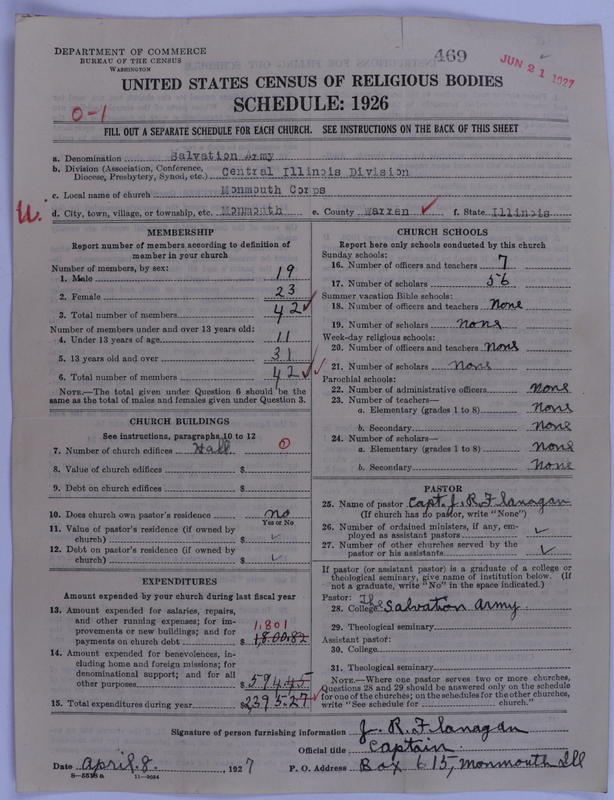 DEPARTMENT OF COMMERCE
BUREAU OF THE CENSUS
WASHINGTON
469
JUN 21 1927
UNITED STATES CENSUS OF RELIGIOUS BODIES
SCHEDULE: 1926
0-1
FILL OUT A SEPARATE SCHEDULE FOR EACH CHURCH. SEE INSTRUCTIONS ON THE BACK OF THIS SHEET
a. Denomination Salvation Army
b. Division (Association, Conference, Diocese, Presbytery, Synod, etc.) Central Illinois Division
c. Local name of church Monmouth Corps
U.
d. City, town, village, or township, etc. Monmouth e. County Warren ✓ f. State Illinois
MEMBERSHIP
Report number of members according to definition of
member in your church
Number of members, by sex:
1. Male 19
2. Female 23
3. Total number of members 42 ✓
Number of members under and over 13 years old:
4. Under 13 years of age 11
5. 13 years old and over 31
6. Total number of members 42 ✓ ✓
NOTE.—The total given under Question 6 should be the
same as the total of males and females given under Question 3.
CHURCH BUILDINGS
See instructions, paragraphs 10 to 12
7. Number of church edifices Hall 0
8. Value of church edifices $
9. Debt on church edifices $
10. Does church own pastor's residence no
Yes or No
11. Value of pastor's residence (if owned by
church) $ ✓
12. Debt on pastor's residence (if owned by
church) $ ✓
EXPENDITURES
Amount expended by your church during last fiscal year
13. Amount expended for salaries, repairs,
and other running expenses; for im-
provements or new buildings; and for
payments on church debt $ 1,800.82
1,801
14. Amount expended for benevolences, in-
cluding home and foreign missions; for
denominational support; and for all
other purposes $ 594.45
15. Total expenditures during year $2,395.27 ✓
CHURCH SCHOOLS
Report here only schools conducted by this church
Sunday schools:
16. Number of officers and teachers 7
17. Number of scholars 56
Summer vacation Bible schools:
18. Number of officers and teachers None
19. Number of scholars None
Week-day religious schools:
20. Number of officers and teachers None
21. Number of scholars None
Parochial schools:
22. Number of administrative officers None
23. Number of teachers—
a. Elementary (grades 1 to 8) None
b. Secondary None
24. Number of scholars—
a. Elementary (grades 1 to 8) None
b. Secondary None
PASTOR
25. Name of pastor Capt. J. R. Flanagan
(If church has no pastor, write "None")
26. Number of ordained ministers, if any, em-
ployed as assistant pastors ✓
27. Number of other churches served by the
pastor or his assistants ✓
If pastor (or assistant pastor) is a graduate of a college or
theological seminary, give name of institution below. (If
not a graduate, write "No" in the space indicated.)
Pastor:
28. College The Salvation Army
29. Theological seminary
Assistant pastor:
30. College
31. Theological seminary
NOTE.—Where one pastor serves two or more churches,
Questions 28 and 29 should be answered only on the schedule
for one of the churches; on the schedules for the other churches,
write "See schedule for church."
Signature of person furnishing information J. R. Flanagan
Official title Captain
Date April 8, 1927 P. O. Address Box 615, Monmouth Ill
8-5518a 11-9024